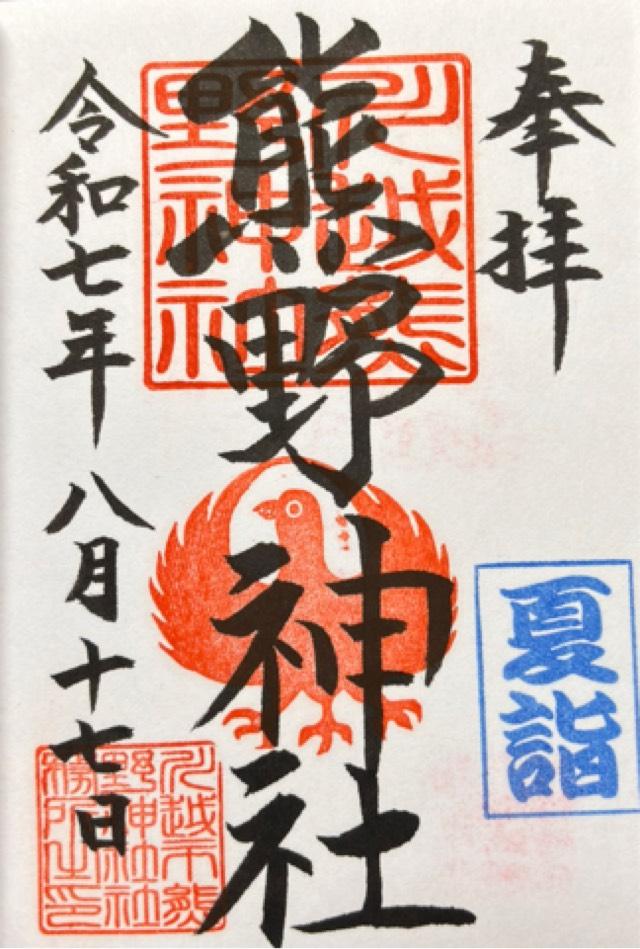 奉拝
夏詣
川越熊
野神社
熊野神社
令和七年八月十七日
川越市熊
野神社社
務所之印